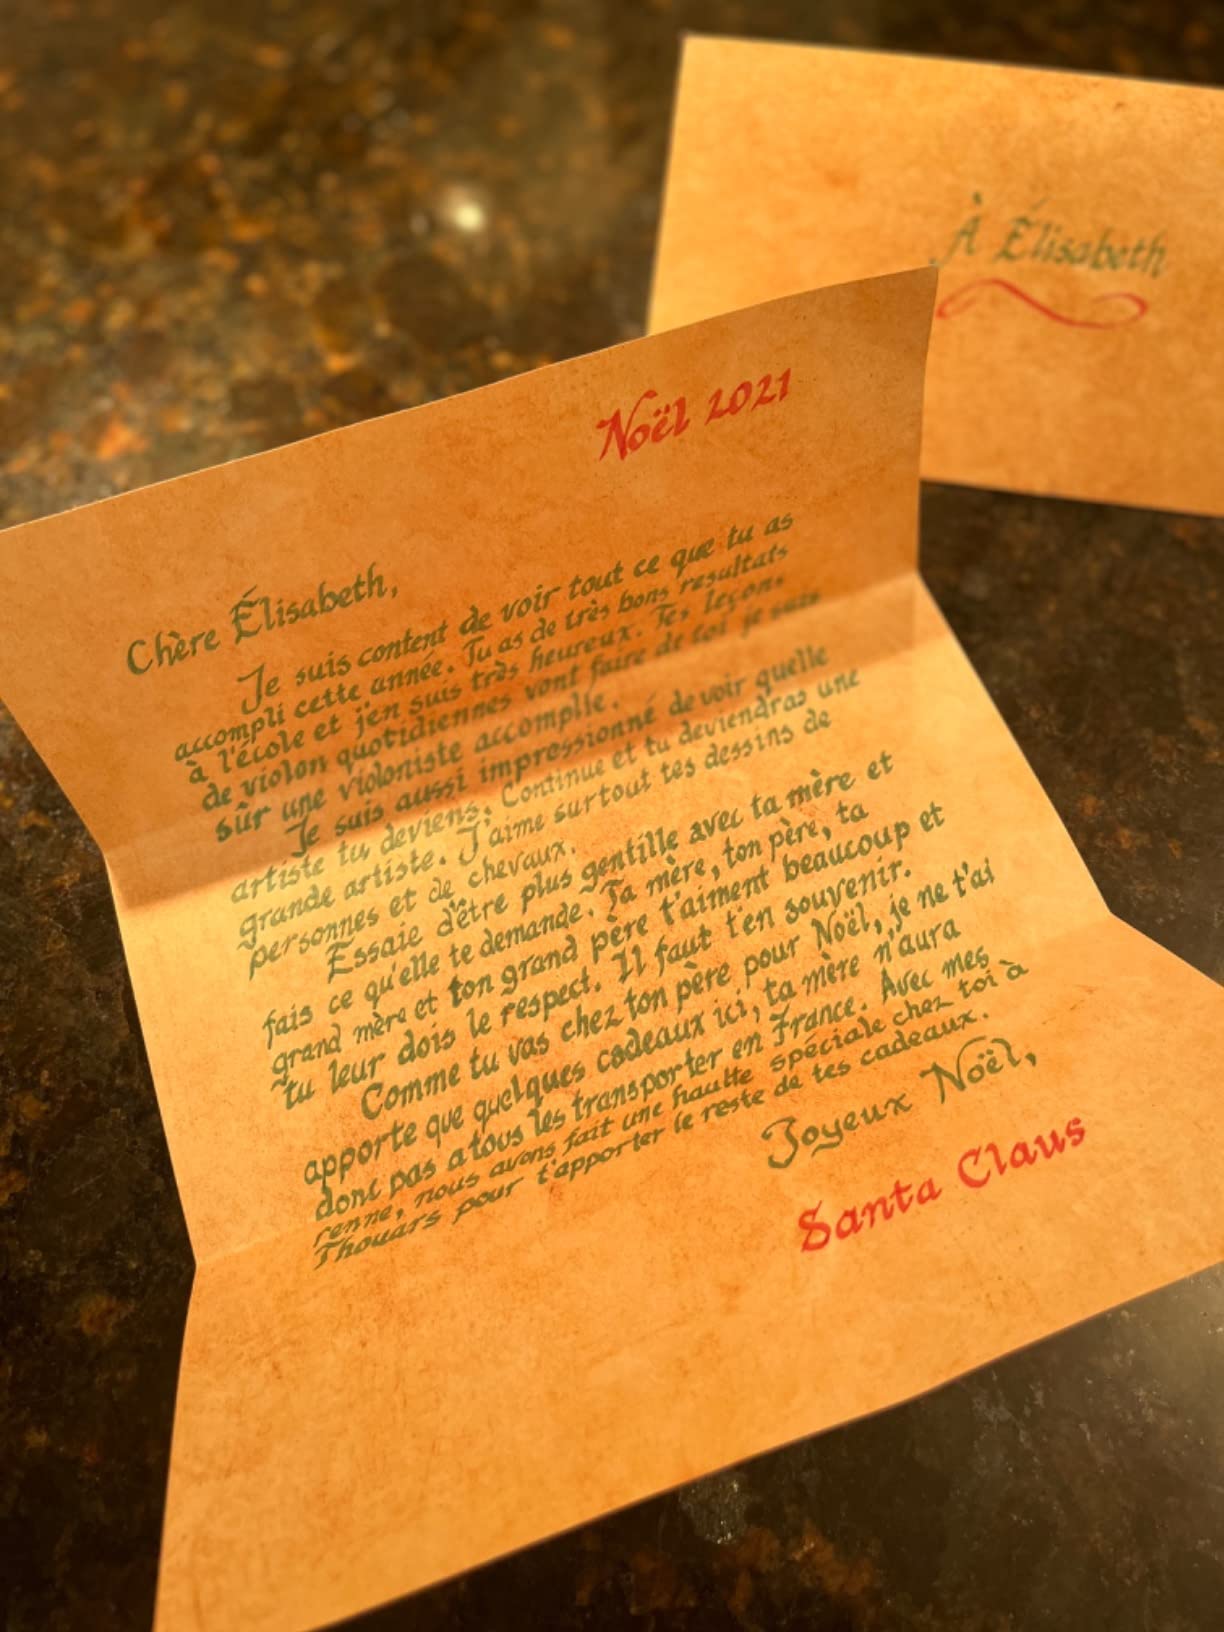 À Élisabeth
Noël 2021
Chère Élisabeth,
Je suis content de voir tout ce que tu as
accompli cette année. Tu as de très bons resultats
à l'école et j'en suis très heureux. Tes leçons
de violon quotidiennes vont faire de toi je suis
sûr une violoniste accomplie.
Je suis aussi impressionné de voir quelle
artiste tu deviens. Continue et tu deviendras une
grande artiste. J'aime surtout tes dessins de
personnes et de chevaux.
Essaie d'être plus gentille avec ta mère et
fais ce qu'elle te demande. Ta mère, ton père, ta
grand mère et ton grand père t'aiment beaucoup et
tu leur dois le respect. Il faut t'en souvenir.
Comme tu vas chez ton père pour Noël, je ne t'ai
apporte que quelques cadeaux ici, ta mère n'aura
donc pas a tous les transporter en France. Avec mes
renne, nous avons fait une haulte spéciale chez toi à
Thouars pour t'apporter le reste de tes cadeaux.
Joyeux Noël,
Santa Claus